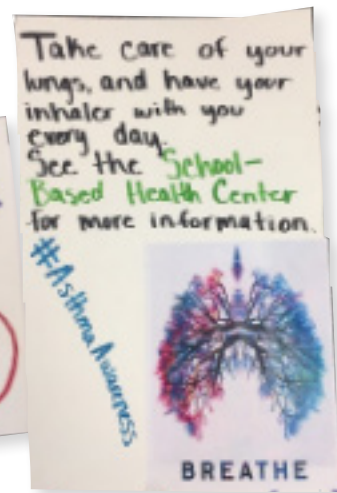 Take care of your
lungs, and have your
inhaler with you
every day.
See the School-
Based Health Center
for more information.
#AsthmaAwareness
BREATHE